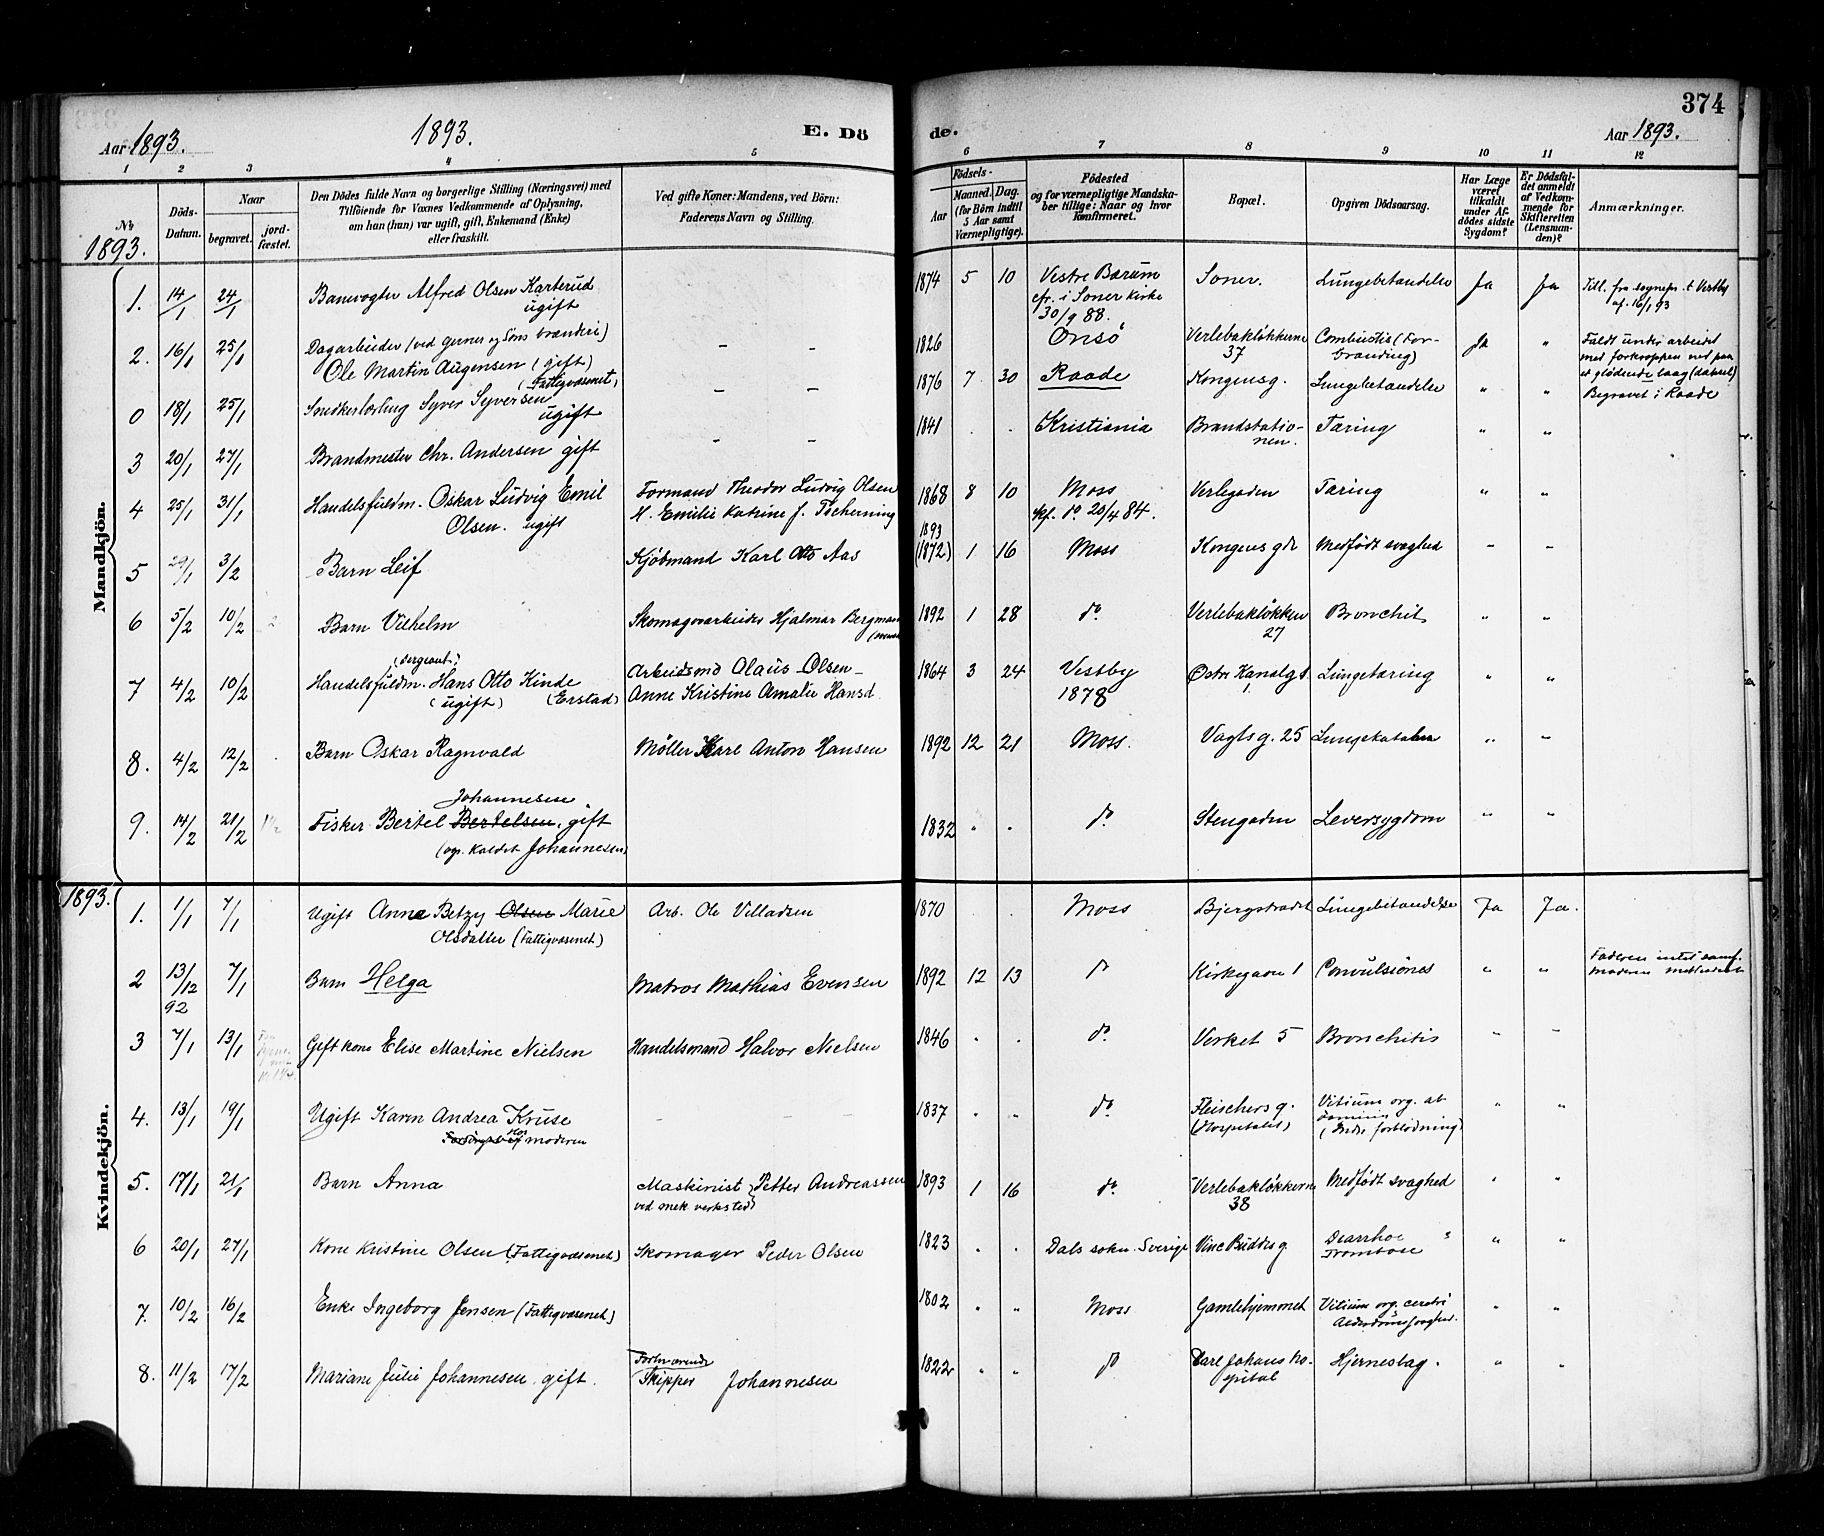 374
Aar 1893.
1893.
E. Dö
de.
Aar 1893.
1 2 3 4 5 6 7 8 9 10 11 12
No
Döds-Datum.
Naar
begravet.
jordfæstet.
Den Dödes fulde Navn og borgerlige Stilling (Næringsvei) med
Tilföiende for Voxnes Vedkommende af Oplysning,
om han (hun) var ugift, gift, Enkemand (Enke)
eller fraskilt.
Ved gifte Koner: Mandens, ved Börn:
Faderens Navn og Stilling.
Födsels-
Aar
Maaned. Dag.
(for Börn indtil
5 Aar samt
Værnepligtige).
Födested
og for værnepligtige Mandska-
ber tillige: Naar og hvor
Konfirmeret.
Bopæl.
Opgiven Dödsaarsag.
Har Læge
været
tilkaldt
under Af-
dödes sidste
Sygdom?
Er Dödsfal-
det anmeldt
af Vedkom-
mende for
Skifteretten
(Lensman-
den)?
Anmærkninger.
1893.
Mandkjön.
1. 14/1 24/1 Banevogter Alfred Olsen Karterud
ugift
1874 5 10 Vestre Bærum
cfr. i Soner Kirke
30/9 88.
Soner. Lungebetændelse Ja Ja Till. fra sognepr. t Vestby
af 16/1 93
2. 16/1 25/1 Dagarbeider (ved Gerner og Søns brænderi)
Ole Martin Augensen (gift)
(Fattigvæsenet)
- - 1826 Onsö Verlebakløkkerne
37
Combustis (For-
brænding)
Ja " Faldt under arbeidet
med forkroppen ned paa
et glödende laag (dæksel)
0 18/1 25/1 Snedkerlærling Syver Syversen
ugift
- - 1876 7 30 Raade Kongensg. Lungebetændelse " " Begravet i Raade
3 20/1 27/1 Brandmester Chr. Andersen gift
- - 1841 . . Kristiania Brandstatio-
nen.
Tæring " "
4 25/1 31/1 Handelsfuldm. Oskar Ludvig Emil
Olsen. ugift
Formand Theodor Ludvig Olsen
H. Emilie Katrine f. Tscherning
1868 8 10 Moss
Kf. do. 20/4 84.
Verlegaden Tæring " "
5 29/1 3/2 Barn Leif Kjöbmand Karl Otto Aas
1893
(1872) 1 16 Moss Kongens gd Medfödt svaghed - -
6 5/2 10/2 Barn Vilhelm Skomagerarbeider Hjalmar Bergman
1892 1 28 do. Verlebakløkken
27
Bronchit " "
7 4/2 10/2 (sergeant)
Handelsfuldm. Hans Otto Kinde
(ugift) (Erstad)
Arbeidsmd Olaus Olsen -
Anne Kristine Amalie Hansd.
1864 3 24 Vestby
1878
Østre Kanalgt. Lungetæring " "
8. 4/2 12/2 Barn Oskar Ragnvald Møller Karl Anton Hansen
1892 12 21 Moss. Vogtsg. 25 Lungekatarrh " "
9. 14/2 21/2 Johannesen
Fisker Bertel Bertelsen, gift
(ogs. kaldet Johannesen)
1832 " . do. Stengaden Leversygdom " "
1893.
Kvindekjön.
1. 1/1 7/1 Ugift Anna Betzy Olsen Marie
Olsdatter (Fattigvæsenet)
Arb. Ole Villadsen
1870 . . Moss Bjergstrædet Lungebetændelse Ja Ja.
2 13/12
92
7/1 Barn Helga Matros Mathias Evensen
1892 12 13 do Kirkegaten 1 Convulsiones " " Faderen intet samf.
Moderen
3 7/1 13/1 Gift kone Elise Martine Nielsen Handelsmand Halvor Nielsen
1846 . . do. Verket 5 Bronchitis " "
4. 13/1 19/1 Ugift Karen Andrea Kruse
Forsörget af Hos moderen
- - 1837 " " do. Fleischersg.
(Hospitalet)
Vitium org. ab
domin
(Indre forblödning) " "
5. 17/1 21/1 Barn Anna Maskinist
ved mek verksted} Petter Andreassen
1893 1 16 do. Verlebakløkkerne
38
Medfödt svaghed " "
6 20/1 27/1 Kone Kristine Olsen (Fattigvæsenet) Skomager Peder Olsen
1823 . . Dals sokn. Sverige Vine Buddesg. Diarrhoe
Trombose " "
7. 10/2 16/2 Enke Ingeborg Jensen (Fattigvæsenet)
1802 " " Moss Gamlehjemmet Vitium org. cerebri
Alderdomssvaghed. " "
8. 11/2 17/2 Mariane Julie Johannesen gift. Forhenværende
Skipper Johannesen
1822 " " do Carl Johans ho-
spital
Hjerneslag. " "